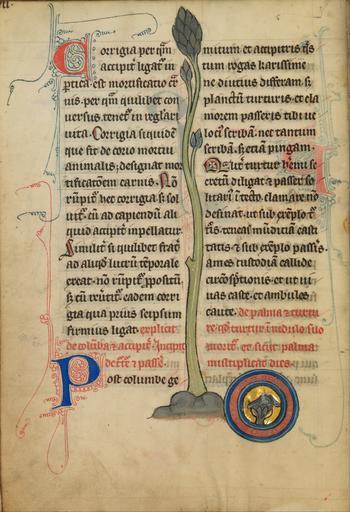 Corrigia per qm
accipit ligat in
ptica est mortificatio
nis per qm quilibet con
uersus tenet in reglari
uita Corrigia siquidē
que fit de corio mortui
animalis designat mor
tificatoēm carnis Nō
rūpit hec corrigia si sol
uit cū ad capiendū ali
quid accipit inpellatur
Similit si quilibet frat
ad aliqd lucrū tēporale
exeat nō rūpit ppositū
sz cū reuertit eadem corri
gia qua prius seipsum
firmius ligat explicit
de colūba & accipit Incipit
Post columbe ge
mitum et accipitris
tum rogas karissime
ne diutius differam
planctū turturis et ela
morem passeris tidi ue
loci scribā nec tantum
scribā sz etiā pingam
turtur hemi se
cretū diligat & passer so
clamare nō
desinat ut sub exēplo
teneas mūdicia casti
tatis & sub exēplo passis
ames custodia callide
ut ui
uas caste et ambules
caute de palma & turtu
re qd turtur i nidulo suo
morit et sicut palma
multiplicat dies